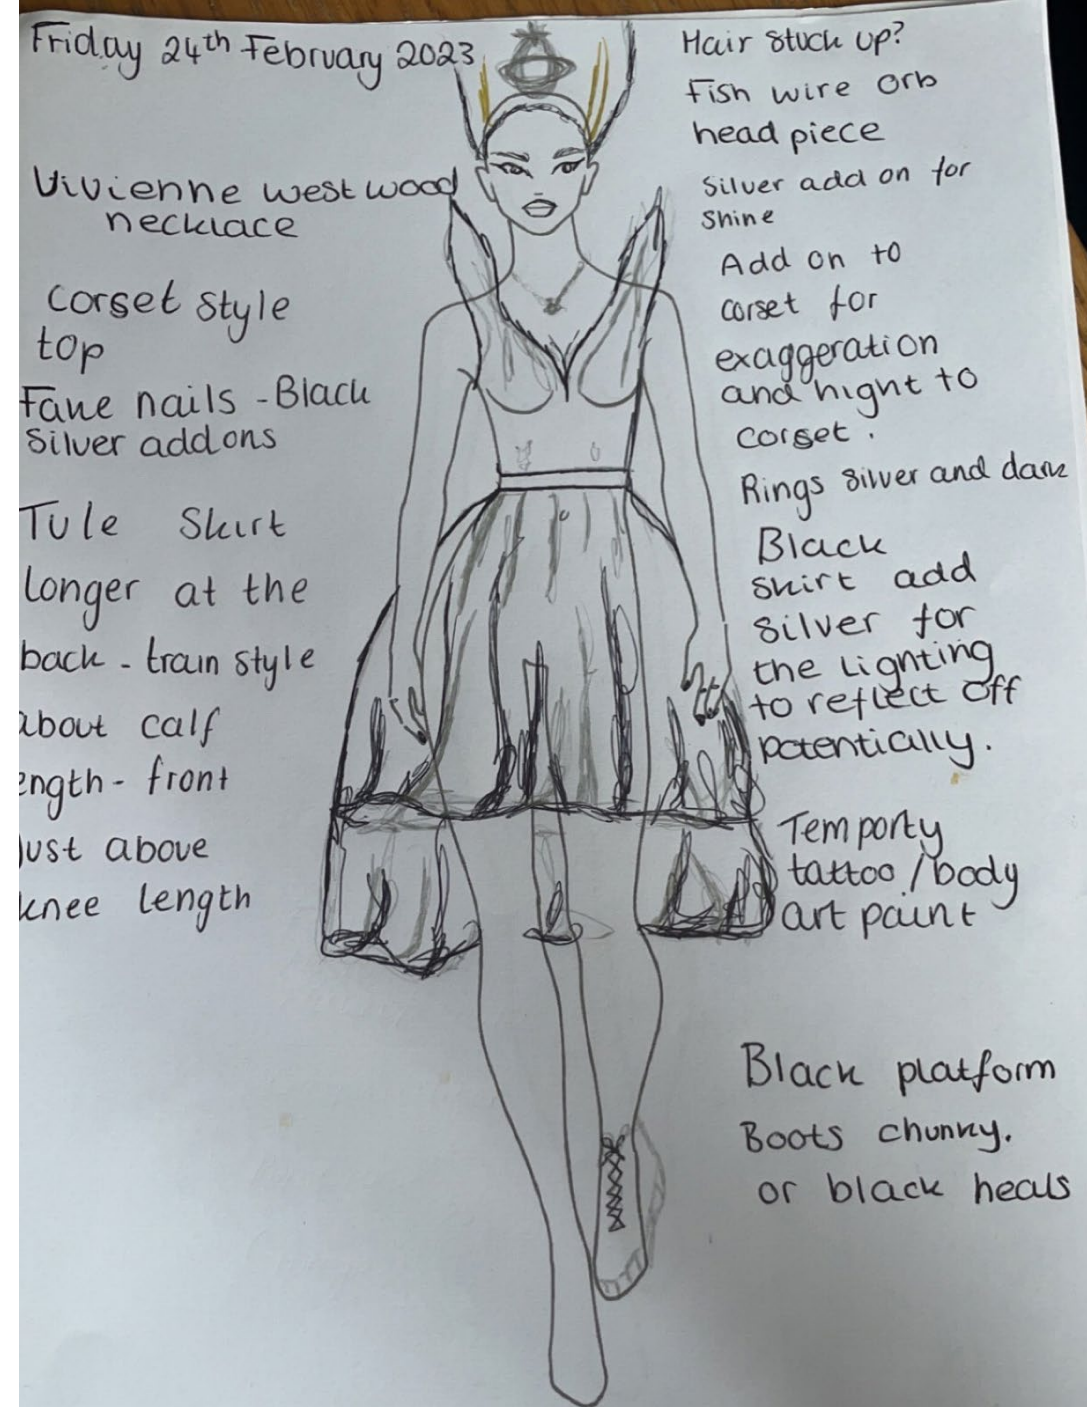 Friday 24th February 2023
Vivienne westwood
necklace
Corset style
top
Fake nails - Black
silver add ons
Tule Skirt
longer at the
back - train style
about calf
ength - front
just above
knee length
Hair stuck up?
Fish wire orb
head piece
Silver add on for
shine
Add on to
corset for
exaggeration
and hight to
corset.
Rings silver and dark
Black
skirt add
silver for
the Lighting
to reflect off
potentially.
Temporty
tattoo / body
art paint
Black platform
Boots chunky.
or black heals